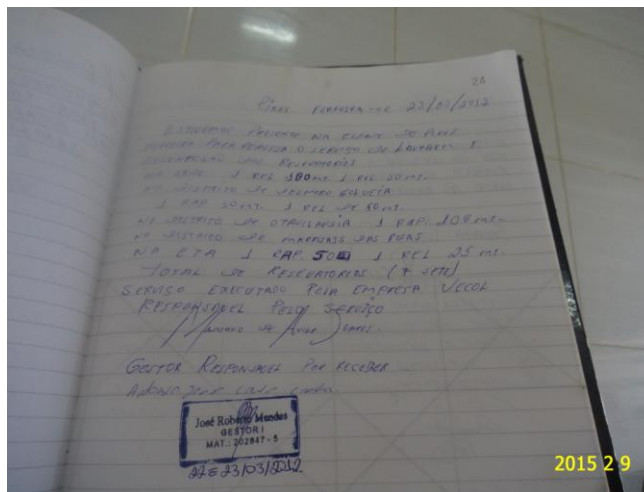 26
Pires Ferreira-CE 23/03/2012
Presente na cidade de Pires
Ferreira para realiza o serviço de lavagem e
desinfecção dos reservatórios
na sede 1 REL 100 m³. 1 REL 50 m³.
no distrito de Delmiro Gouveia
1 RAP 50 m³. 1 REL de 80 m³.
no distrito de Otavilandia 1 RAP. 108 m³.
no distrito de das Rosas
na ETA 1 RAP. 50 1 REL 25 m³.
Total de reservatórios (7 sete)
Serviço executado pela empresa
Responsavel pelo serviço
Gestor Responsavel por receber
José Roberto Mendes
GESTOR I
MAT.: 202847-5
22 e 23/03/2012
2015 2 9